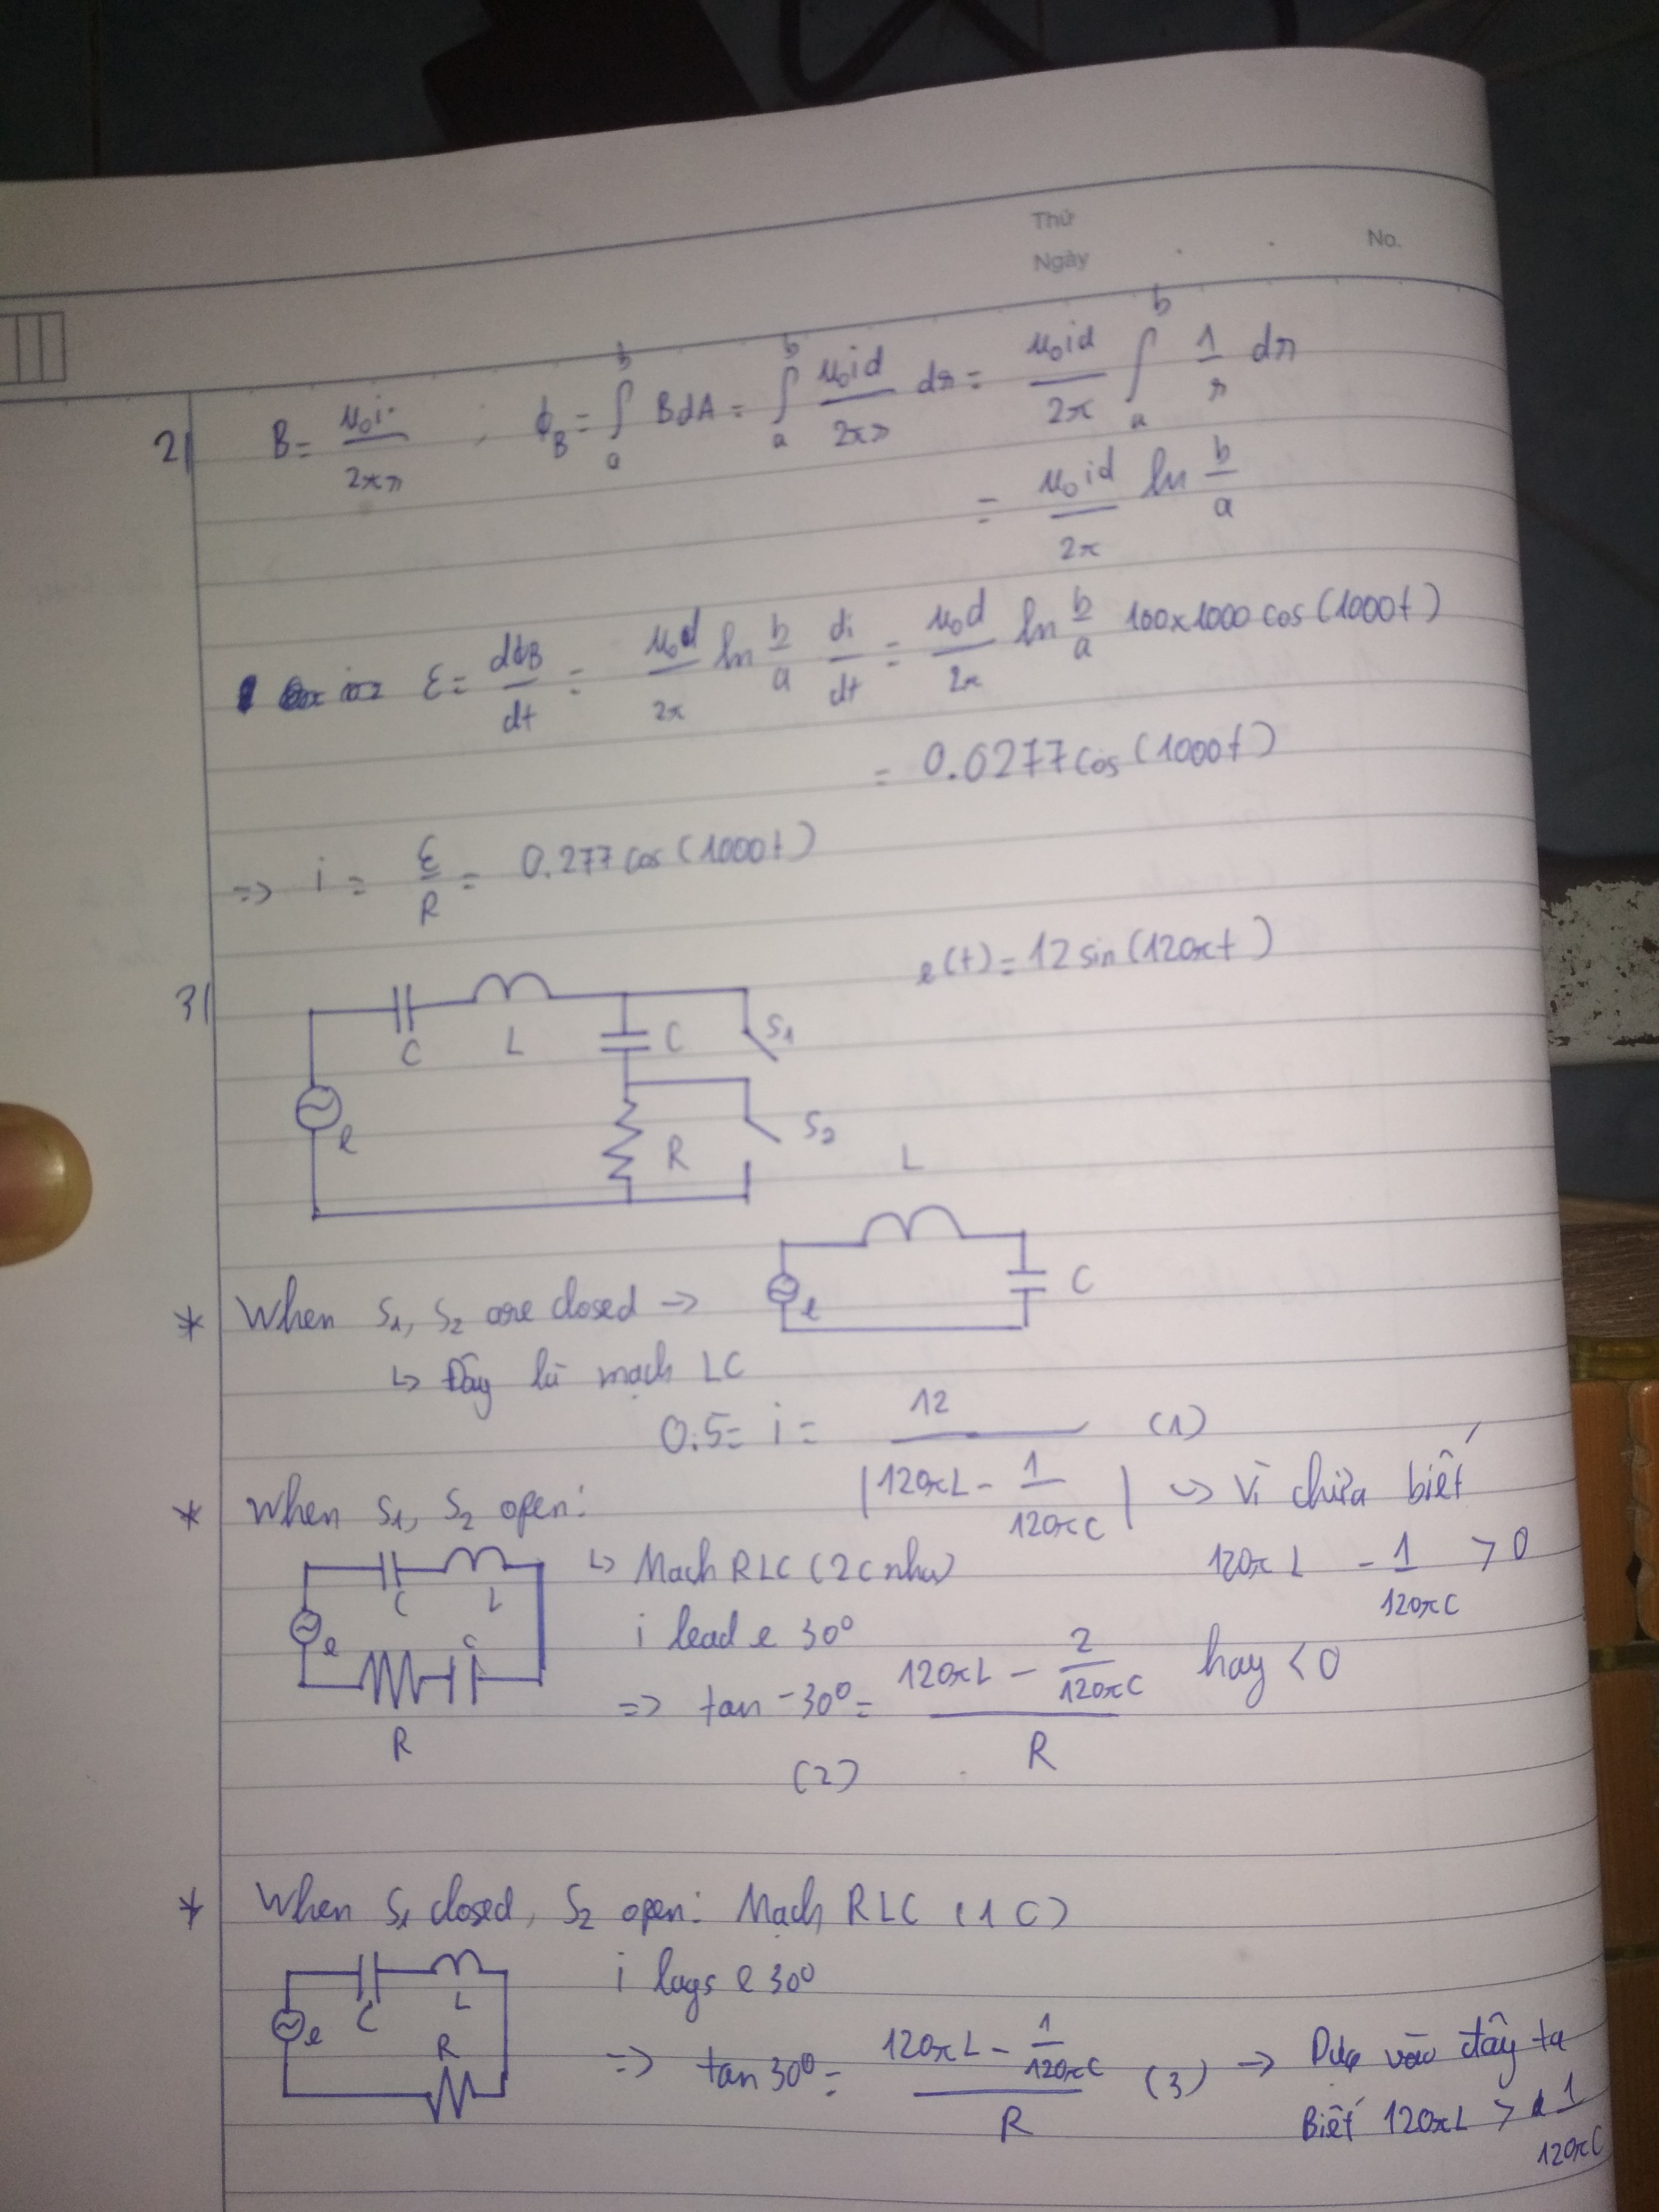 Thứ
Ngày
No.
2| B = μ₀i / 2πr ; ϕ_B = ∫_a^b BdA = ∫_a^b μ₀id / 2πr dr = μ₀id / 2π ∫_a^b 1/r dr
= μ₀id / 2π ln b/a
ε = dϕ_B / dt = μ₀d / 2π ln b/a di/dt = μ₀d / 2π ln b/a 100x1000 cos(1000t)
= 0.0277 cos(1000t)
=> i = ε/R = 0.277 cos(1000t)
3| e(t) = 12 sin(120πt)
C L C S₁
e R S₂
L
e C
* When S₁, S₂ are closed ->
↳ Đây là mạch LC
0.5 = i = 12 / |120πL - 1/120πC| (1)
-> Vì chưa biết
120πL - 1/120πC > 0
hay < 0
* When S₁, S₂ open:
C L e C R
↳ Mạch RLC (2C nha)
i lead e 30⁰
=> tan -30⁰ = (120πL - 2/120πC) / R
(2)
* When S₁ closed, S₂ open: Mạch RLC (1 C)
C L e R
i lags e 30⁰
=> tan 30⁰ = (120πL - 1/120πC) / R (3) -> Dựa vào đây ta
Biết 120πL > 1/120πC